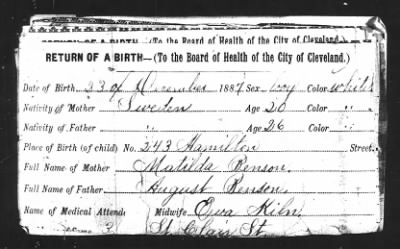 RETURN OF A BIRTH—(To the Board of Health of the City of Cleveland.)
RETURN OF A BIRTH—(To the Board of Health of the City of Cleveland.)
Date of Birth, 23 of December 1887 Sex Boy Color White
Nativity of Mother Sweden Age 20 Color "
Nativity of Father " Age 26 Color "
Place of Birth (of child) No. 243 Hamilton Street.
Full Name of Mother Matilda Benson.
Full Name of Father August Benson
Name of Medical Attend Midwife Ewa Kihn
St Clair St